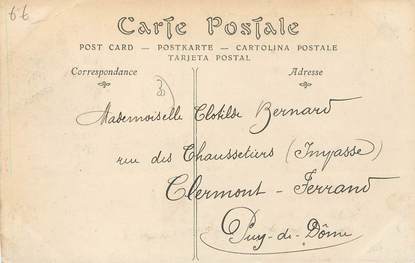 66
Carte Postale
POST CARD — POSTKARTE — CARTOLINA POSTALE
TARJETA POSTAL
Correspondance
Adresse
Mademoiselle Clotilde Bernard
rue des Chaussetiers (Impasse)
Clermont - Ferrand
Puy-de-Dôme